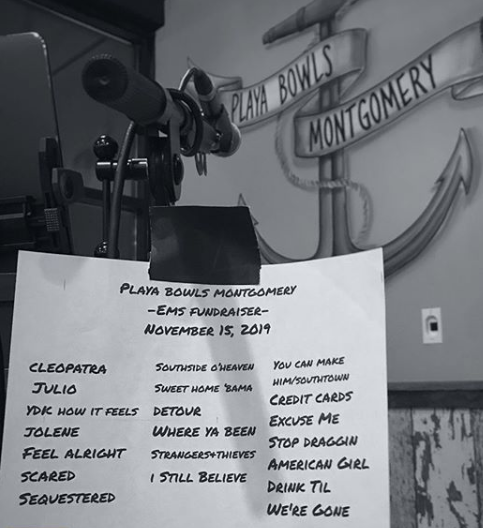 PLAYA BOWLS
MONTGOMERY
PLAYA BOWLS MONTGOMERY
-EMS FUNDRAISER-
NOVEMBER 15, 2019
CLEOPATRA
JULIO
YDK HOW IT FEELS
JOLENE
FEEL ALRIGHT
SCARED
SEQUESTERED
SOUTHSIDE O'HEAVEN
SWEET HOME 'BAMA
DETOUR
WHERE YA BEEN
STRANGERS+THIEVES
I STILL BELIEVE
YOU CAN MAKE
HIM/SOUTHTOWN
CREDIT CARDS
EXCUSE ME
STOP DRAGGIN
AMERICAN GIRL
DRINK TIL
WE'RE GONE